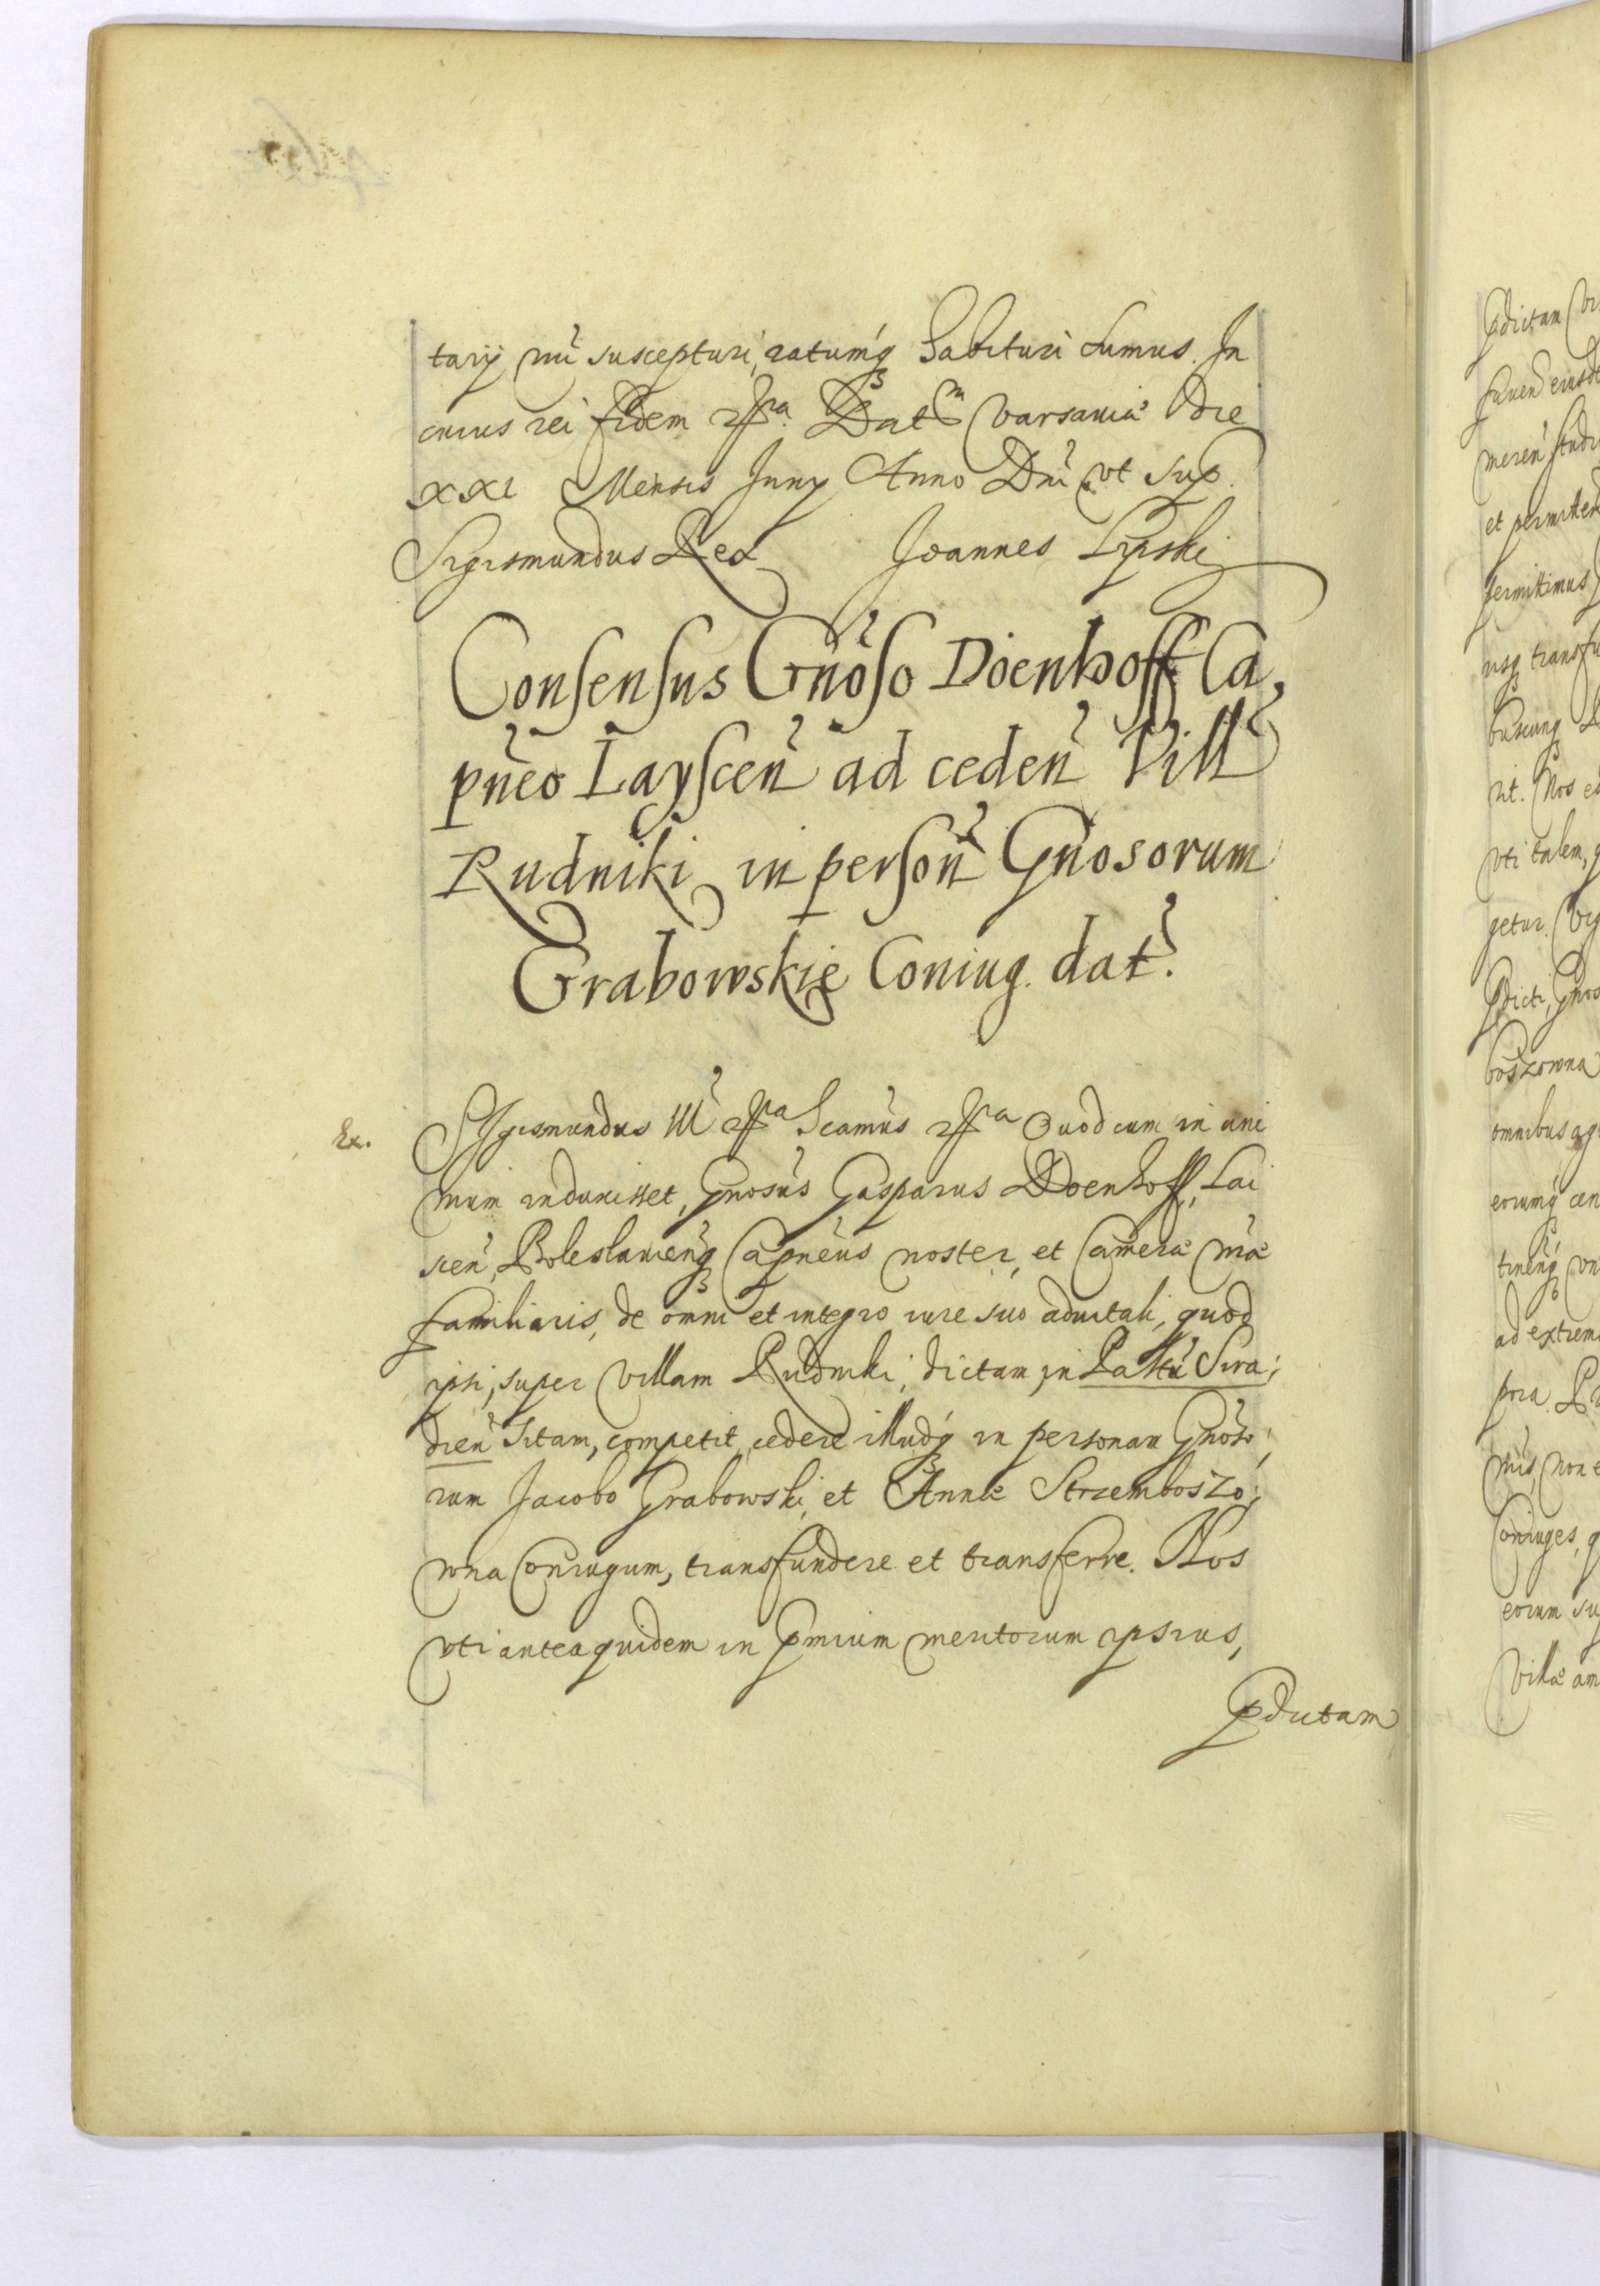 tarÿ nr̃i suscepturi, ratumq́ꝫ habituri sumus. In
cuius rei fidem etc̃ra. Datꝫ Varsaviæ die
XXI Mensis Junÿ Anno Dn̄i ut sup.
Sigismundus Rex Joannes Lipski
Consensus Gn̄oso Doenhoff Ca,
pn̄eo Laÿscen̄ ad ceden̄ Vill̄
Rudniki in person̄ Gn̄osorum
Grabowskie Coniug. dat̄.
Ex.
Sigismundus III etc̃ra Scamus etc̃ra Quod cum in ani
mum induxisset, Gnosus Gasparus Doenhoff, Lai
scen̄, Boleslavien̄qꝫ Capn̄eus noster, et Cameræ n̄ræ
familiaris, de om̄ni et integro iure suo advitali, quod
ipsi, super villam Rudniki, dictam, in Pallu Sira;
dien̄ sitam, competit, cedere illudq́ꝫ in personam Gn̄oso;
rum Jacobo Grabowski, et Annæ Strzemboszo;
wna Coniugum, transfundere et transferre. Nos
uti antea quidem in p̄mium meritorum ipsius,
p̄dictam
p̄dictam
et
permittimus
transfu
rit. Nos
uti talem,
getur.
p̄dicti, Gnos
boszowna
omnibus
eorumq́ꝫ
ad extrema
Coniuges,
eorum
Villæ